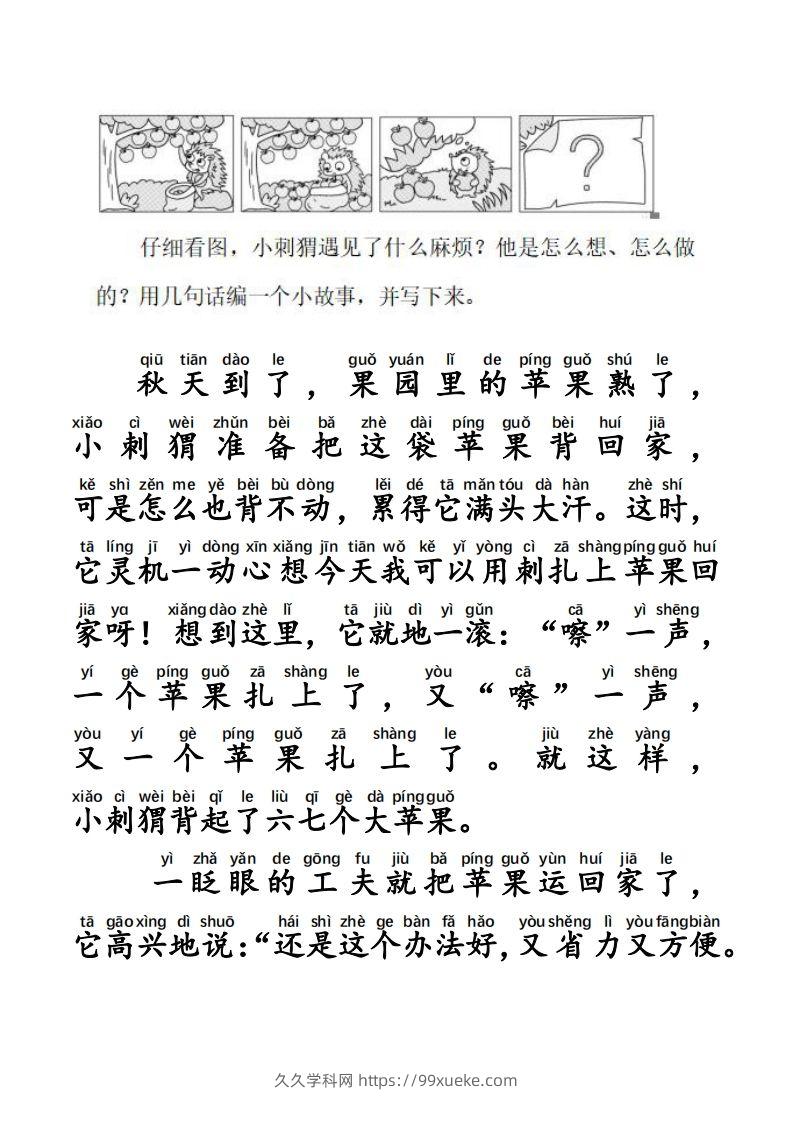 ?
仔细看图，小刺猬遇见了什么麻烦？他是怎么想、怎么做
的？用几句话编一个小故事，并写下来。
qiū tiān dào le guǒ yuán lǐ de píng guǒ shú le
秋天到了，果园里的苹果熟了，
xiǎo cì wèi zhǔn bèi bǎ zhè dài píng guǒ bèi huí jiā
小刺猬准备把这袋苹果背回家，
kě shì zěn me yě bèi bù dòng lěi dé tā mǎn tóu dà hàn zhè shí
可是怎么也背不动，累得它满头大汗。这时，
tā líng jī yì dòng xīn xiǎng jīn tiān wǒ kě yǐ yòng cì zā shàng píng guǒ huí
它灵机一动心想今天我可以用刺扎上苹果回
jiā ya xiǎng dào zhè lǐ tā jiù dì yì gǔn cā yì shēng
家呀！想到这里，它就地一滚：“嚓”一声，
yí gè píng guǒ zā shàng le yòu cā yì shēng
一个苹果扎上了，又“嚓”一声，
yòu yí gè píng guǒ zā shàng le jiù zhè yàng
又一个苹果扎上了。就这样，
xiǎo cì wèi bèi qǐ le liù qī gè dà píng guǒ
小刺猬背起了六七个大苹果。
yì zhǎ yǎn de gōng fu jiù bǎ píng guǒ yùn huí jiā le
一眨眼的工夫就把苹果运回家了，
tā gāo xìng dì shuō hái shì zhè ge bàn fǎ hǎo yòu shěng lì yòu fāng biàn
它高兴地说：“还是这个办法好，又省力又方便。
久久学科网 https://99xueke.com